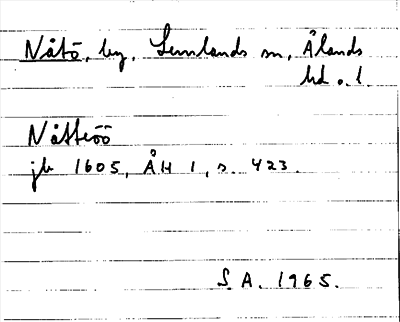 Nåtö, by, Lemlands sn, Ålands
hd o. l.
Nåtteöö
jb 1605, ÅH 1, s. 423.
S.A. 1965.